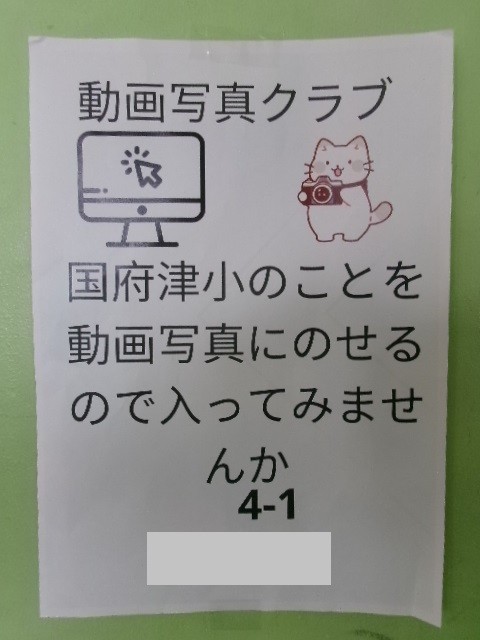 動画写真クラブ
国府津小のことを
動画写真にのせる
ので入ってみませ
んか
4-1